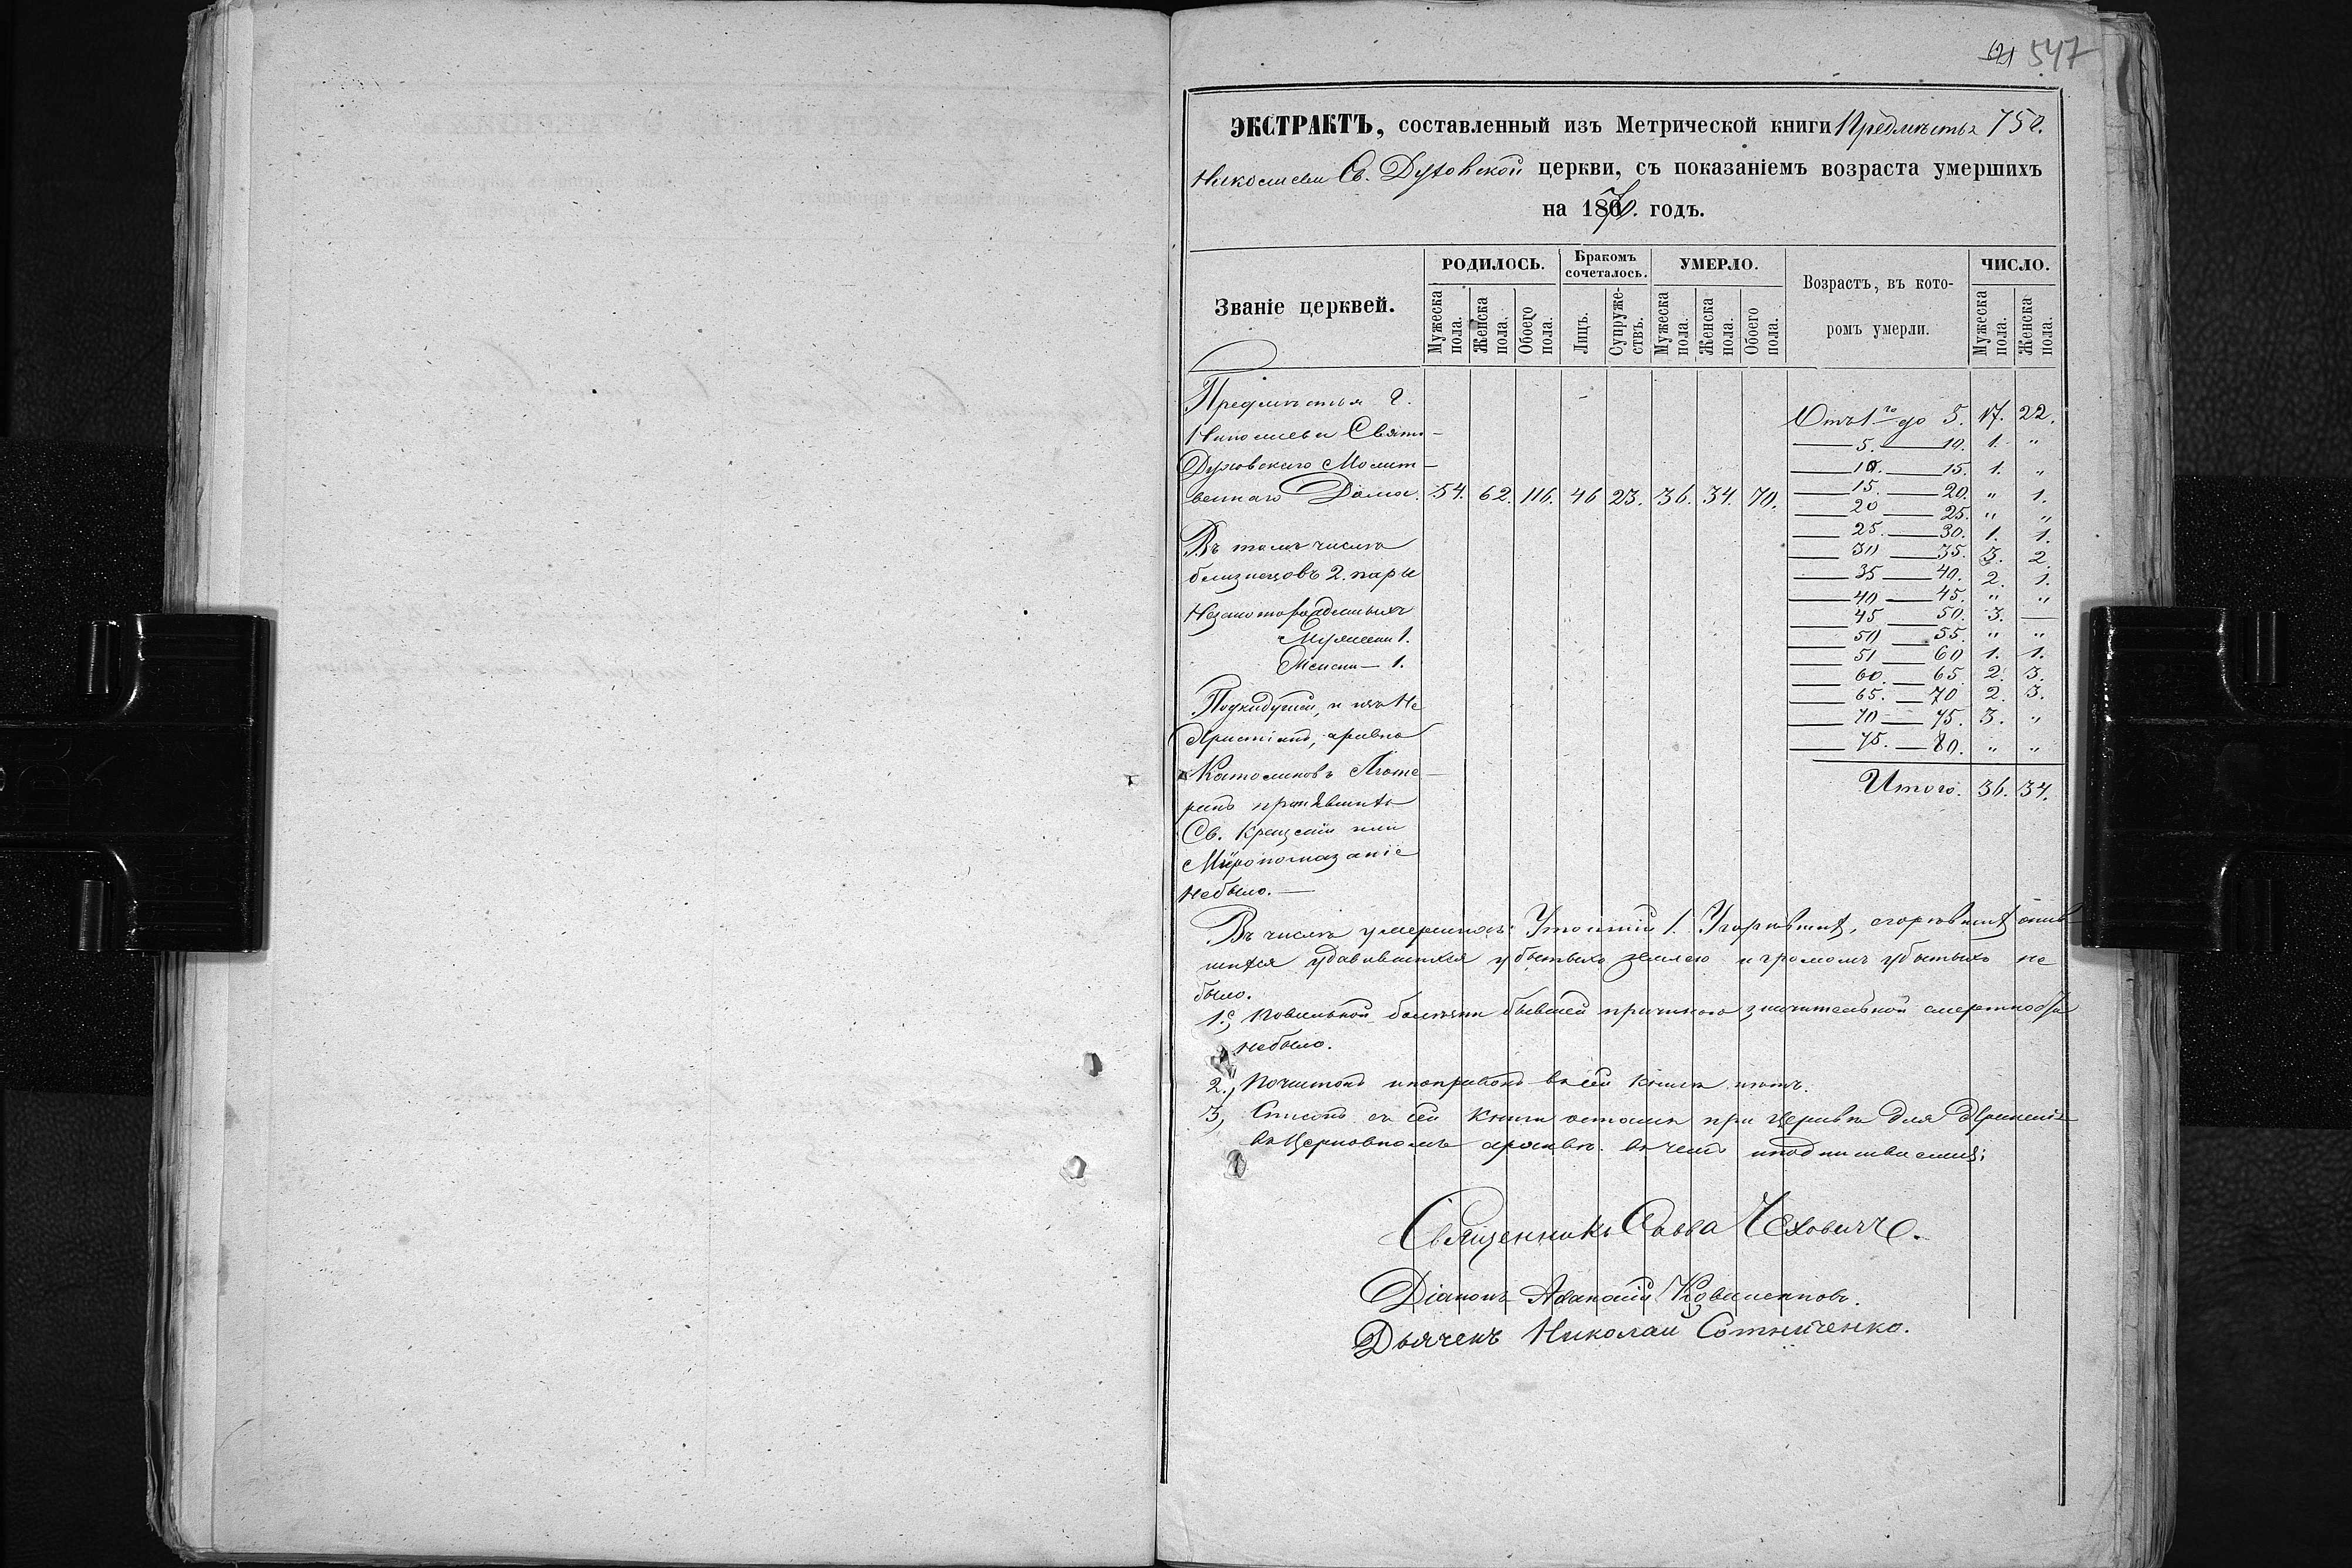 547
ЭКСТРАКТЪ, составленный изъ Метрической книги Предмѣстья
Николаева Св. Духовской церкви, съ показаніемъ возраста умершихъ
на 1870. годъ.
Званіе церквей.
РОДИЛОСЬ.
Мужеска пола.
Женска пола.
Обоего пола.
Бракомъ сочеталось.
Лицъ.
Супружествъ.
УМЕРЛО.
Мужеска пола.
Женска пола.
Обоего пола.
Возрастъ, въ которомъ умерли.
ЧИСЛО.
Мужеска пола.
Женска пола.
Предмѣстья г.
Николаева Свято-
Духовскаго Молит-
веннаго Дома. 54. 62. 116. 46 23. 36. 34. 70.
Въ томъ числѣ
близнецовъ 2. пары
Незаконорожденныхъ
Мужески 1.
Женски — 1.
Подкидушей, и изъ Не
Христіанъ,
Католиковъ Люте-
ранъ принявшихъ
Св. Крещеніе или
Мѵропомазаніе
небыло. —
Отъ 1-го до 5. 17. 22.
— 5. — 10. 1. "
— 10. — 15. 1. "
— 15. — 20. " 1.
— 20 — 25. " "
— 25. — 30. 1. 1.
— 30 — 35. 3. 2.
— 35 — 40. 2. 1.
— 40 — 45. " "
— 45 — 50. 3. —
— 50 — 55. " "
— 51 — 60 1. 1.
— 60. — 65. 2. 3.
— 65. — 70 2. 3.
— 70 — 75. 3. "
— 75. — 80. " "
Итого. 36. 34.
Въ числѣ умершихъ: 1. Угорѣвших, сгорѣвших опив
шихся удавившихся убитыхъ землею и громомъ убитыхъ не
было.
1., Повальной болѣзни бывшей причиною значительной смертности
небыло.
2., Почистокъ и поправокъ въ сей книгѣ нѣтъ.
3, Списокъ съ сей книги оставленъ при Церкви для храненія
въ Церковномъ архивѣ. въ чемъ и подписываемся:
Священникъ Савва Чехович.
Діаконъ Афанасій
Дьячекъ Николай Сотниченко.